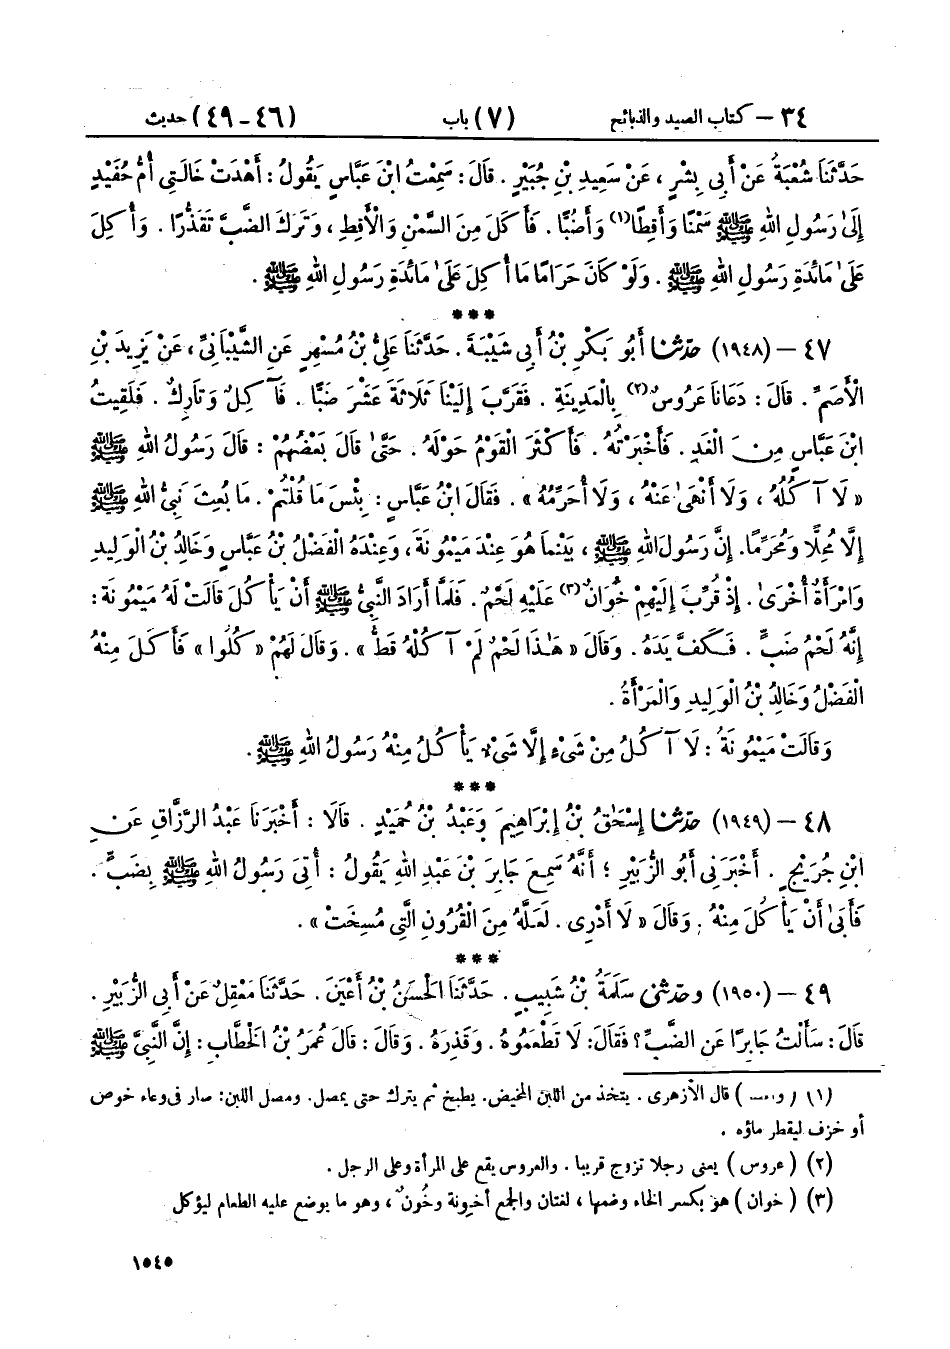 ٣٤ – كتاب الصيد والذبائح (٧) باب (٤٦ – ٤٩) حديث
حَدَّثَنَا شُعْبَةُ عَنْ أَبِي بِشْرٍ، عَنْ سَعِيدِ بْنِ جُبَيْرٍ. قَالَ: سَمِعْتُ ابْنَ عَبَّاسٍ يَقُولُ: أَهْدَتْ خَالَتِي أُمُّ حُفَيْدٍ
إِلَىٰ رَسُولِ اللهِ ﷺ سَمْنًا وَأَقِطًا(١) وَأَضُبًّا. فَأَكَلَ مِنَ السَّمْنِ وَالْأَقِطِ، وَتَرَكَ الضَّبَّ تَقَذُّرًا. وَأُكِلَ
عَلَىٰ مَائِدَةِ رَسُولِ اللهِ ﷺ. وَلَوْ كَانَ حَرَامًا مَا أُكِلَ عَلَىٰ مَائِدَةِ رَسُولِ اللهِ ﷺ.
***
٤٧ – (١٩٤٨) حدّثنا أَبُو بَكْرِ بْنُ أَبِي شَيْبَةَ. حَدَّثَنَا عَلِيُّ بْنُ مُسْهِرٍ عَنِ الشَّيْبَانِيِّ، عَنْ يَزِيدَ بْنِ
الْأَصَمِّ. قَالَ: دَعَانَا عَرُوسٌ(٢) بِالْمَدِينَةِ. فَقَرَّبَ إِلَيْنَا ثَلَاثَةَ عَشَرَ ضَبًّا. فَآكِلٌ وَتَارِكٌ. فَلَقِيتُ
ابْنَ عَبَّاسٍ مِنَ الْغَدِ. فَأَخْبَرْتُهُ. فَأَكْثَرَ الْقَوْمُ حَوْلَهُ. حَتَّىٰ قَالَ بَعْضُهُمْ: قَالَ رَسُولُ اللهِ ﷺ
« لَا آكُلُهُ، وَلَا أَنْهَىٰ عَنْهُ، وَلَا أُحَرِّمُهُ ». فَقَالَ ابْنُ عَبَّاسٍ: بِئْسَ مَا قُلْتُمْ. مَا بُعِثَ نَبِيُّ اللهِ ﷺ
إِلَّا مُحِلًّا وَمُحَرِّمًا. إِنَّ رَسُولَ اللهِ ﷺ، بَيْنَمَا هُوَ عِنْدَ مَيْمُونَةَ، وَعِنْدَهُ الْفَضْلُ بْنُ عَبَّاسٍ وَخَالِدُ بْنُ الْوَلِيدِ
وَامْرَأَةٌ أُخْرَىٰ. إِذْ قُرِّبَ إِلَيْهِمْ خُوَانٌ(٣) عَلَيْهِ لَحْمٌ. فَلَمَّا أَرَادَ النَّبِيُّ ﷺ أَنْ يَأْكُلَ قَالَتْ لَهُ مَيْمُونَةُ:
إِنَّهُ لَحْمُ ضَبٍّ. فَكَفَّ يَدَهُ. وَقَالَ « هَٰذَا لَحْمٌ لَمْ آكُلْهُ قَطُّ ». وَقَالَ لَهُمْ « كُلُوا » فَأَكَلَ مِنْهُ
الْفَضْلُ وَخَالِدُ بْنُ الْوَلِيدِ وَالْمَرْأَةُ.
وَقَالَتْ مَيْمُونَةُ: لَا آكُلُ مِنْ شَيْءٍ إِلَّا شَيْءٌ يَأْكُلُ مِنْهُ رَسُولُ اللهِ ﷺ.
***
٤٨ – (١٩٤٩) حدّثنا إِسْحَٰقُ بْنُ إِبْرَاهِيمَ وَعَبْدُ بْنُ حُمَيْدٍ. قَالَا: أَخْبَرَنَا عَبْدُ الرَّزَّاقِ عَنِ
ابْنِ جُرَيْجٍ. أَخْبَرَنِي أَبُو الزُّبَيْرِ؛ أَنَّهُ سَمِعَ جَابِرَ بْنَ عَبْدِ اللهِ يَقُولُ: أُتِيَ رَسُولُ اللهِ ﷺ بِضَبٍّ.
فَأَبَىٰ أَنْ يَأْكُلَ مِنْهُ. وَقَالَ « لَا أَدْرِي. لَعَلَّهُ مِنَ الْقُرُونِ الَّتِي مُسِخَتْ ».
***
٤٩ – (١٩٥٠) وحدّثني سَلَمَةُ بْنُ شَبِيبٍ. حَدَّثَنَا الْحَسَنُ بْنُ أَعْيَنَ. حَدَّثَنَا مَعْقِلٌ عَنْ أَبِي الزُّبَيْرِ.
قَالَ: سَأَلْتُ جَابِرًا عَنِ الضَّبِّ؟ فَقَالَ: لَا تَطْعَمُوهُ. وَقَذِرَهُ. وَقَالَ: قَالَ عُمَرُ بْنُ الْخَطَّابِ: إِنَّ النَّبِيَّ ﷺ
(١) قال الأزهرى. يتخذ من اللبن المخيض. يطبخ ثم يترك حتى يمصل. ومصل اللبن: صار فى وعاء خوص
أو خزف ليقطر ماؤه.
(٢) (عروس) يعنى رجلا تزوج قريبا. والعروس يقع على المرأة وعلى الرجل.
(٣) (خوان) هو بكسر الخاء وضمها، لغتان والجمع أخيونة وخُونٌ، وهو ما يوضع عليه الطعام ليؤكل
١٥٤٥